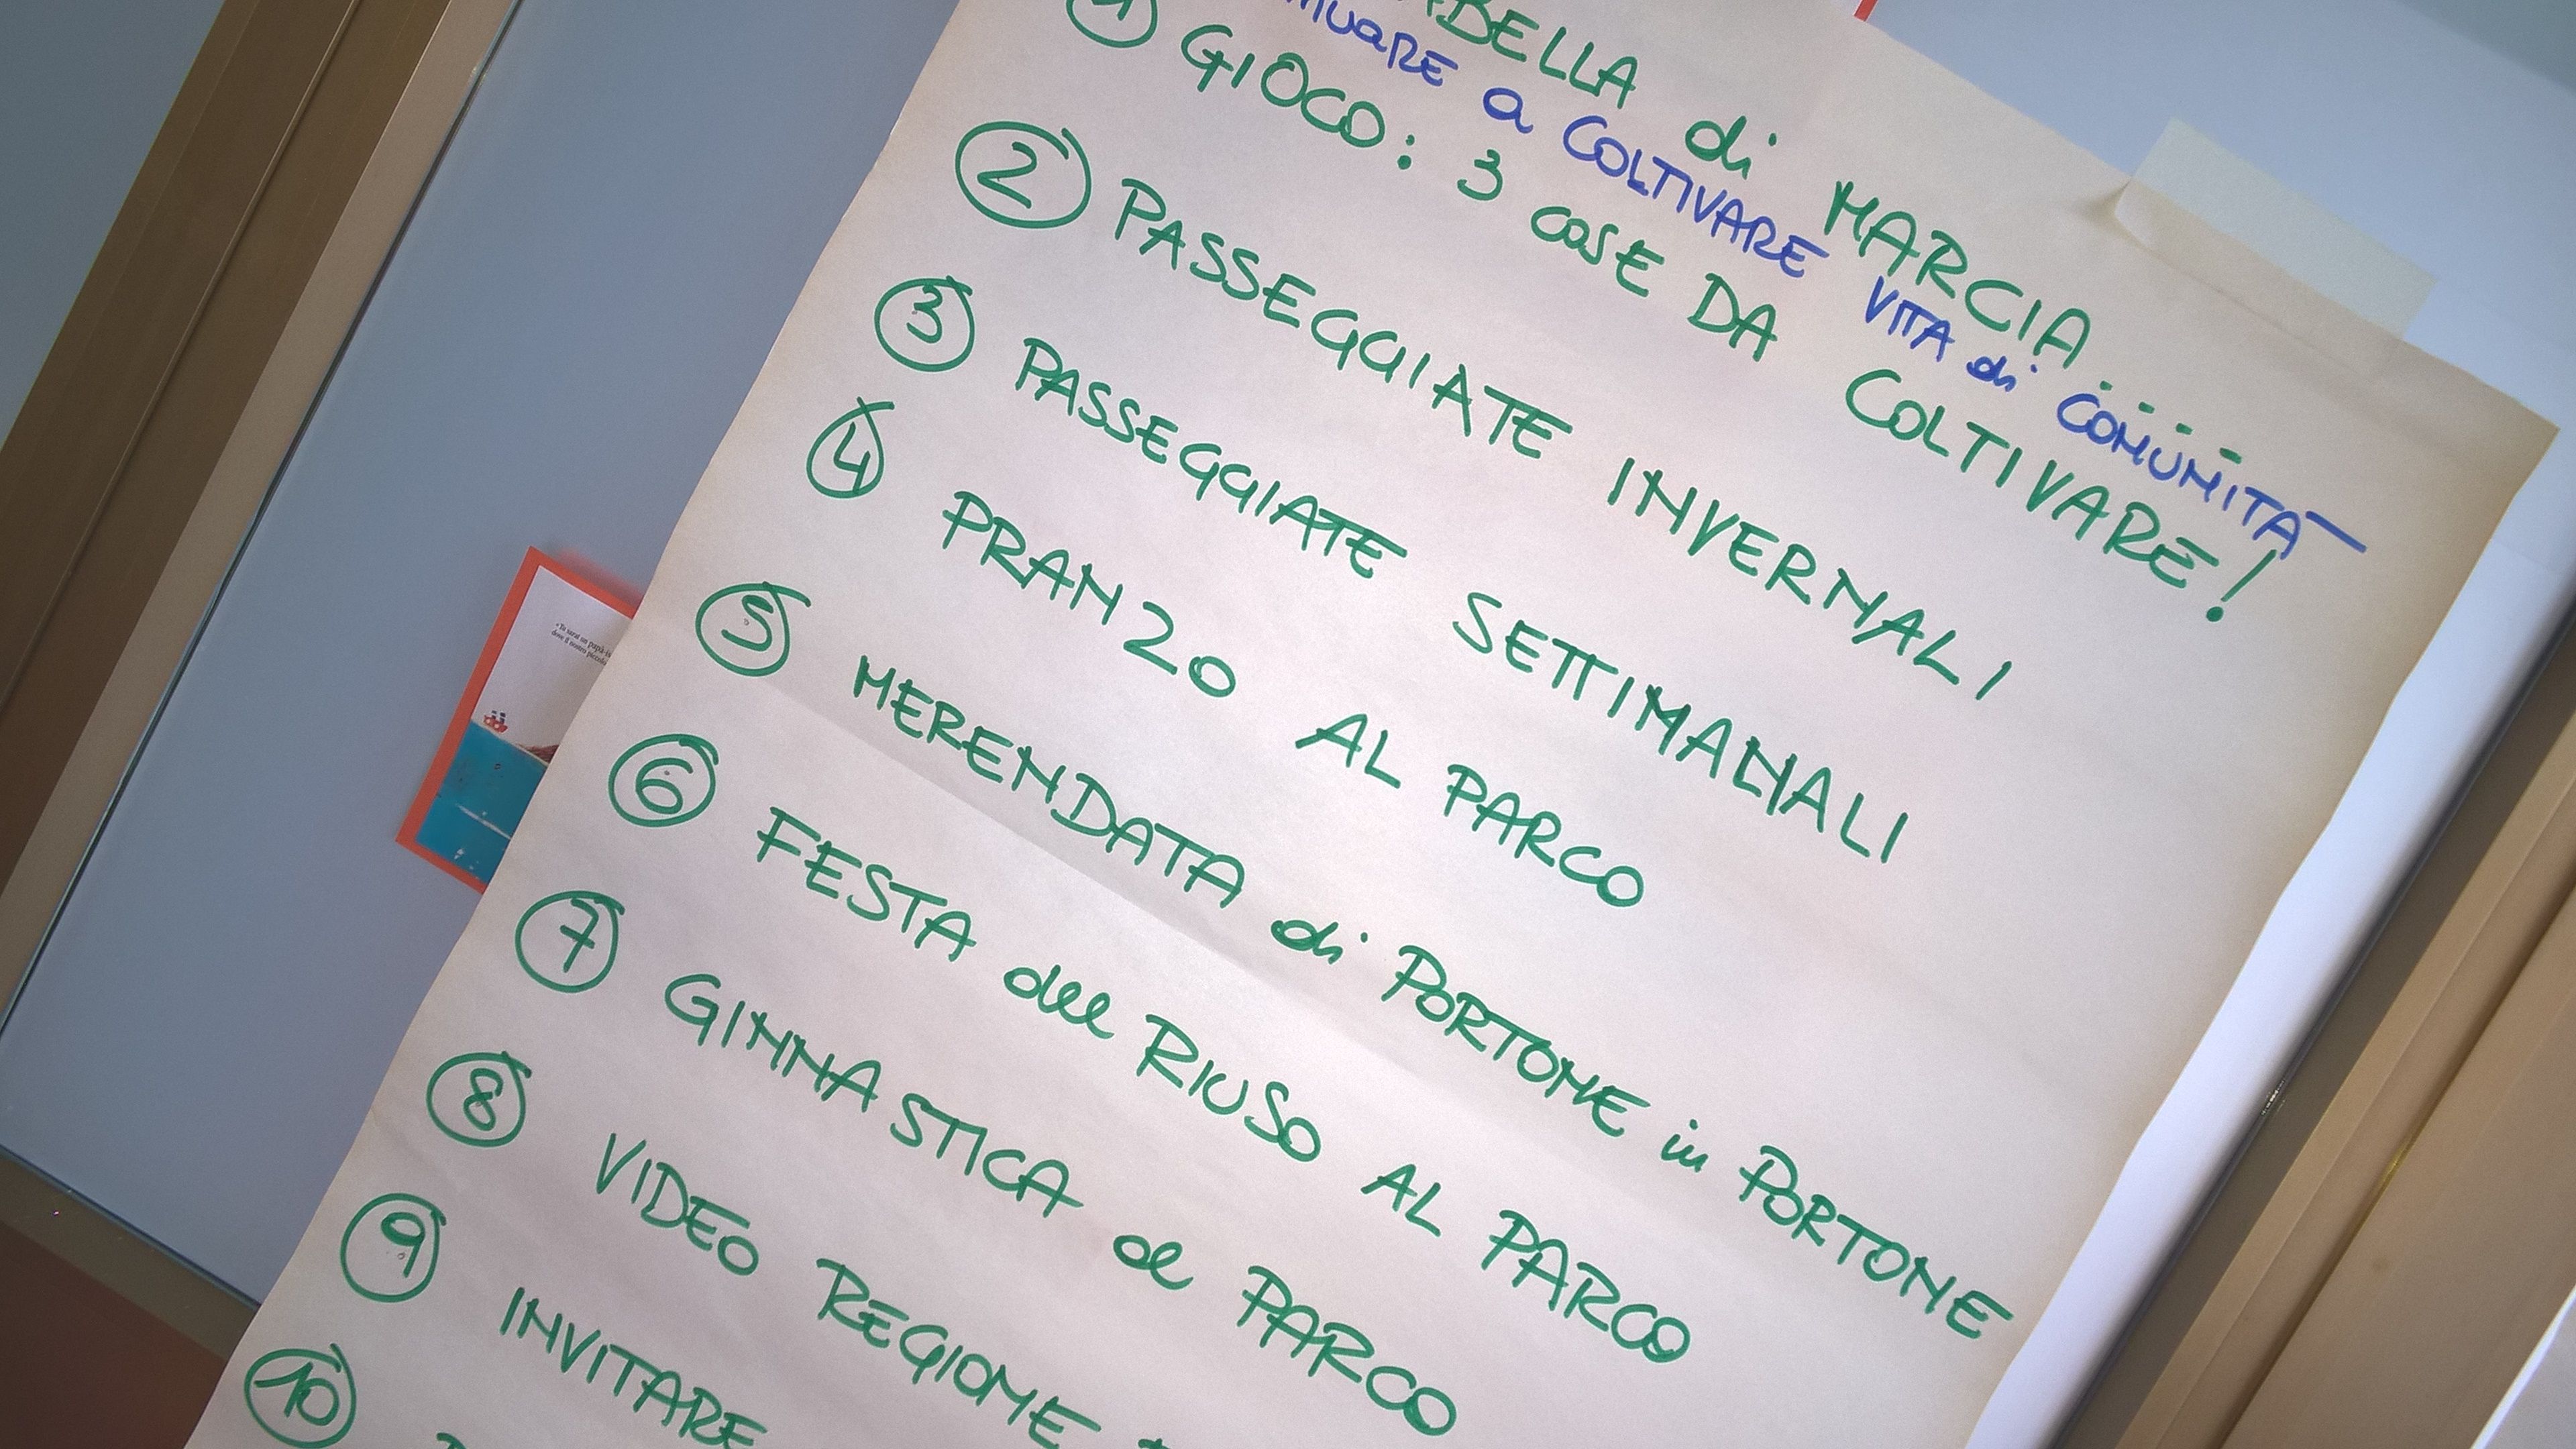 di MARCIA.....
a COLTIVARE VITA di COMUNITÀ
1 GIOCO: 3 COSE DA COLTIVARE!
2 PASSEGGIATE INVERNALI
3 PASSEGGIATE SETTIMANALI
4 PRANZO AL PARCO
5 MERENDATA di PORTONE in PORTONE
6 FESTA del RIUSO AL PARCO
7 GINNASTICA al PARCO
8 VIDEO REGIONE
9 INVITARE
10